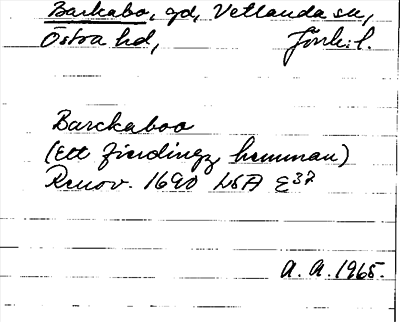 Barkabo, gd, Vetlanda sn,
Östra hd, Jönk. l.
Barckaboo
(Ett fierdingz hemman)
Renov. 1690 LSA E37
A. A. 1965.